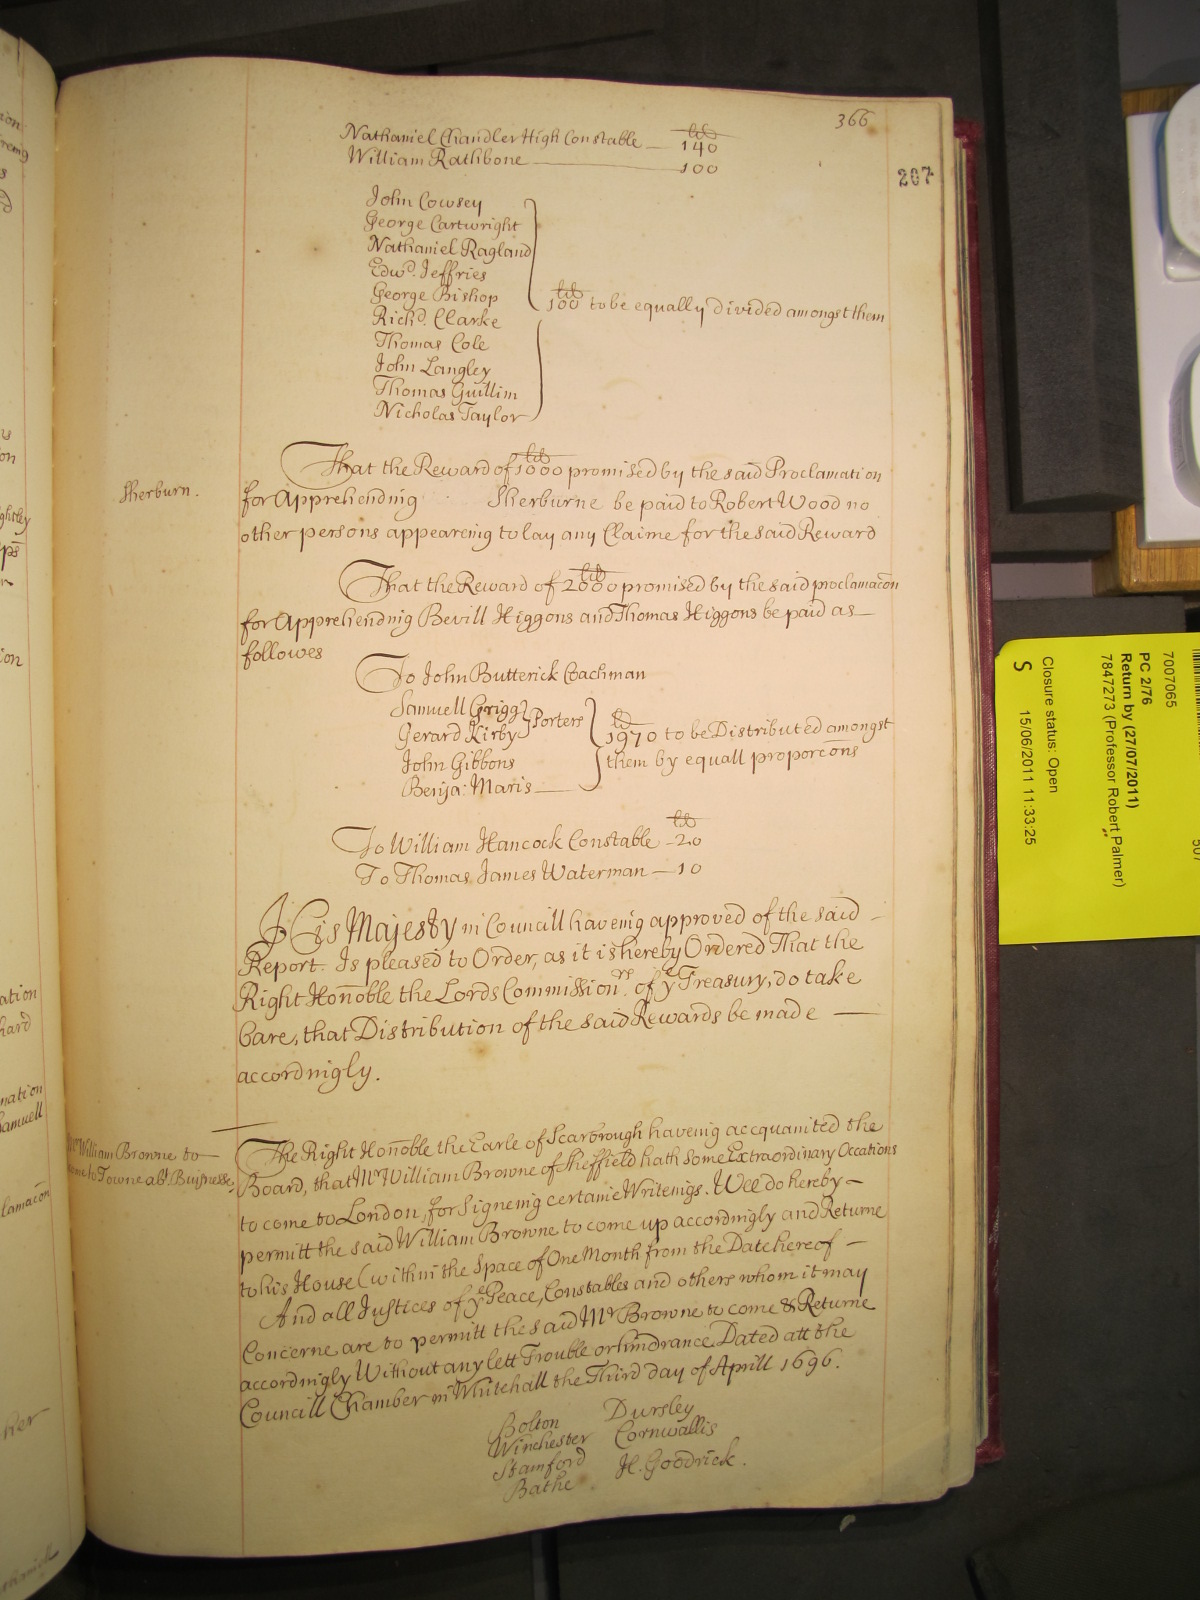 366
207
Nathaniel Chandler High Constable — lib 140
William Rathbone — 100
John Cowsey
George Cartwright
Nathaniel Ragland
Edwd. Jeffries
George Bishop
lib 100 to be equally divided amongst them
Richd. Clarke
Thomas Cole
John Langley
Thomas Guillim
Nicholas Taylor
Sherburn.
That the Reward of lib 1000 promised by the said Proclamation
for Apprehending Sherburne be paid to Robert Wood no
other persons appeareing to lay any Claime for the said Reward
That the Reward of lib 2000 promised by the said proclamacōn
for Apprehending Bevill Higgons and Thomas Higgons be paid as
followes
To John Butterick Coachman
Samuell Grigg
Gerard Kirby } Porters
lib 1970 to be Distributed amongst
them by equall proporcōns
John Gibbons
Benja: Maris
To William Hancock Constable — lib 20
To Thomas James Waterman — 10
His Majesty in Councill haveing approved of the said
Report. Is pleased to Order, as it is hereby Ordered That the
Right Honōble the Lords Commissionrs. of ye Treasury, do take
Care, that Distribution of the said Rewards be made —
accordingly.
Mr William Browne to
come to Towne abt Buisnesse.
The Right Honōble the Earle of Scarbrough haveing accquainted the
Board, that Mr William Browne of Sheffield hath some Extraordinary Occations
to come to London, for Signeing certaine Writeings. Wee do hereby —
permitt the said William Browne to come up accordingly and Returne
to his House (within the Space of One Month from the Date hereof —
And all Justices of ye Peace, Constables and others whom it may
Concerne are to permitt the said Mr Browne to come & Returne
accordingly Without any lett Trouble or hindrance Dated att the
Councill Chamber in Whitehall the Third day of Aprill 1696.
Bolton Dursley
Winchester Cornwallis
Stamford H. Goodrick.
Bathe
7007065
PC 2/76
Return by (27/07/2011)
7847273 (Professor Robert Palmer)
Closure status: Open
S 15/06/2011 11:33:25